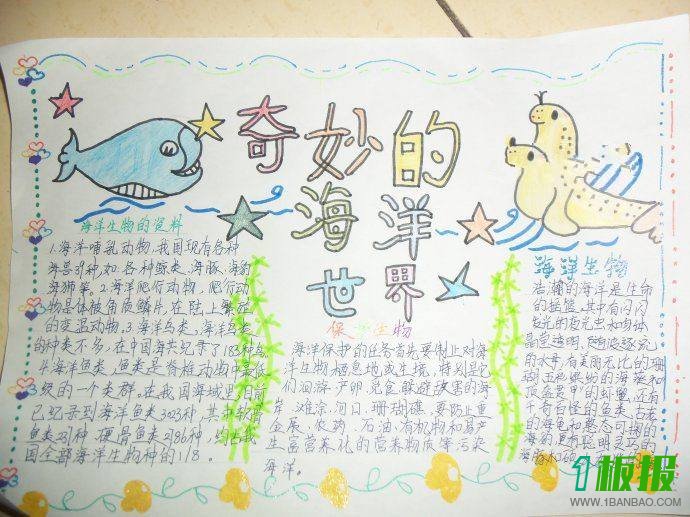 奇妙的
海洋
世界
海洋生物的资料
1.海洋哺乳动物,我国现有各种
海兽39种,如各种鲸类、海豚、海豹
海狮等。2.海洋爬行动物,爬行动
物是体被角质鳞片,在陆上繁殖
的变温动物。3.海洋鸟类,海洋鸟类
的种类不多,在中国海共纪录了183种鸟
4.海洋鱼类,鱼类是脊椎动物中最低
级的一个类群。在我国海域里,目前
已纪录到海洋鱼类3023种,其中软骨
鱼类237种,硬骨鱼类2786种,约占我
国全部海洋生物种的1/8。
保护生物
海洋保护的任务首先要制止对海
洋生物栖息地或生境,特别是它
们洄游、产卵、觅食、躲避敌害的海
岸、滩涂、河口、珊瑚礁,要防止重
金属、农药、石油、有机物和易产
生富营养化的营养物质等污染
海洋。
海洋生物
浩瀚的海洋是生命
的摇篮。其中有闪闪
发光的夜光虫和
的水母,有美丽无比的珊
瑚
有奇形怪的鱼类、古老
的海龟和憨态可掬的
海豹,更有聪明灵巧的
海豚和
1板报
WWW.1BANBAO.COM